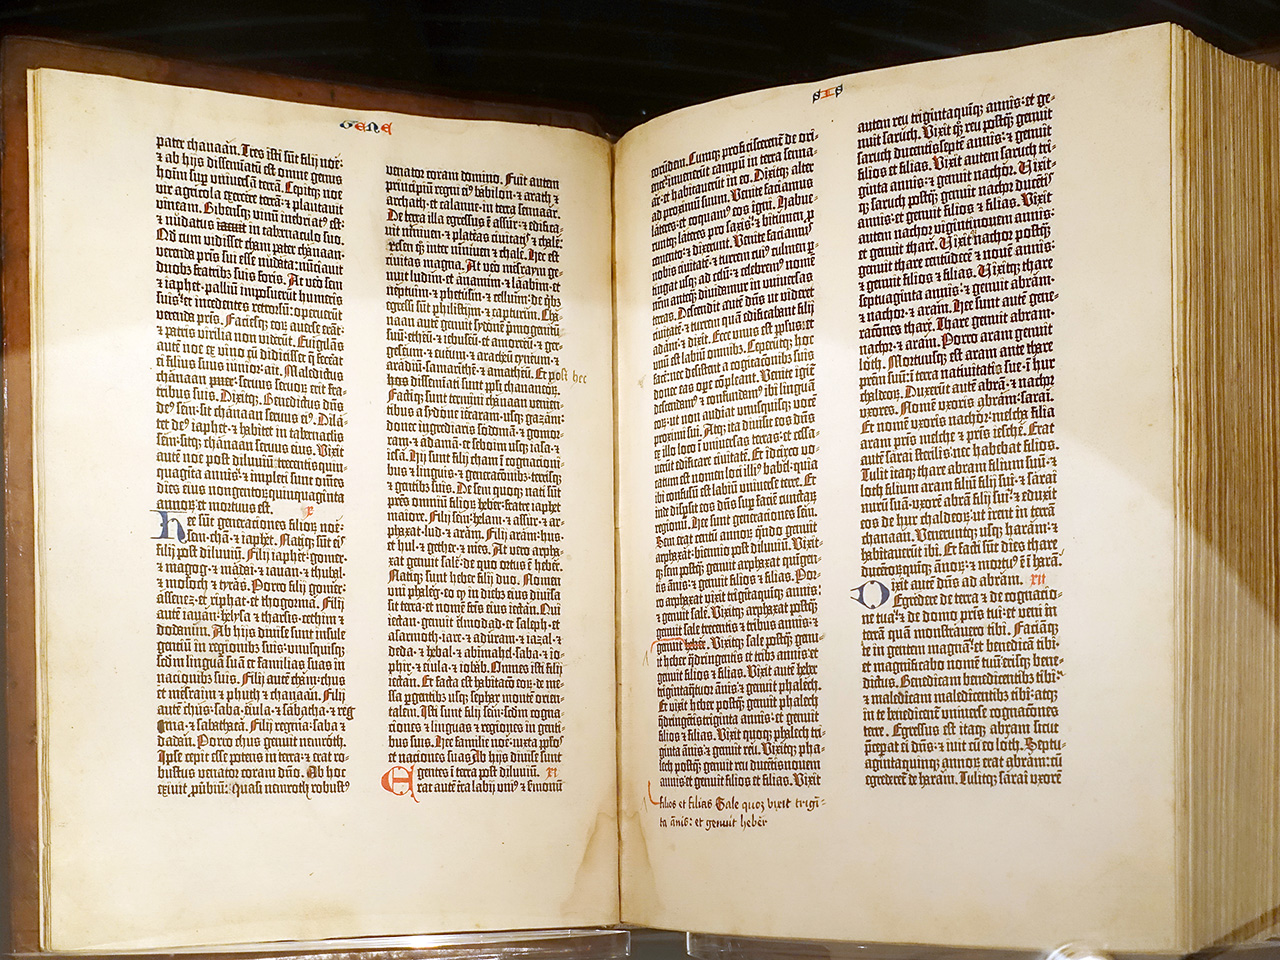 GENE
pater chanaan. Tres isti sūt filij noe:
⁊ ab hijs disseminatū est omne genus
hoīm sup universā terrā. Cepitqꝫ noe
vir agricola exercere terrā: ⁊ plantavit
vineam. Bibensqꝫ vinū inebriatꝰ est:
⁊ nudatus in tabernaculo suo.
Qd cum vidisset cham pater chanaan:
verenda pris sui esse nudata: nūciavit
duobꝫ fratribꝫ suis foris. At vero sem
⁊ iaphet. palliū imposuerūt humeris
suis: et incedentes retrorsū: operuerūt
verenda pris. Faciesqꝫ eoꝝ averse erāt:
⁊ patris virilia non viderūt. Evigilās
autē noe ex vino cū didicisset q̄ fecerat
ei filius suus iunior: ait. Maledictus
chanaan puer: servus servoꝝ erit fra-
tribus suis. Dixitqꝫ. Benedictus dn̄s
deꝰ sem: sit chanaan servus eiꝰ. Dila-
tet deꝰ iaphet: ⁊ habitet in tabernaclis
sem: sitqꝫ chanaan servus eius. Vixit
autē noe post diluviū trecentis quin-
quaginta annis: ⁊ impleti sunt oēs
dies eius nongentoꝝ quinquaginta
annoꝝ: et mortuus est. x
Hee sūt generaciones filioꝝ noe:
sem. cham ⁊ iaphet. Natiqꝫ sūt eis
filij post diluviū. Filij iaphet: gomer.
⁊ magog. ⁊ madai. ⁊ iauan. ⁊ thubal.
⁊ mosoch ⁊ tyras. Porro filij gomer:
assenez. et riphat et thogorma. Filij
autē iavan: helysa ⁊ tharsis. cethim ⁊
dodanim. Ab hijs divise sunt insule
genciū in regionibꝫ suis: unusquisqꝫ
scdm linguā suā et familias suas in
nacionibꝫ suis. Filij autē cham: chus
et mesraim ⁊ phuth ⁊ chanaan. Filij
autē chus: saba. evila: ⁊ sabatha. ⁊ reg
ma: ⁊ sabathaca. Filij regma: saba ⁊
dadan. Porro chus genuit nemroth.
Ipse cepit esse potens in terra: ⁊ erat ro-
bustus venator coram dn̄o. Ab hoc
exivit pverbiū: quasi nemroth robustꝰ
venator coram domino. Fuit autem
principiū regni eiꝰ babilon. ⁊ arath ⁊
archath. et calanne. in terra sennaar.
De terra illa egressus ē assur: ⁊ edifica-
vit niniven. ⁊ plateas civitatꝭ ⁊ chale.
resen qꝫ inter niniven ⁊ chale. Hec est
civitas magna. At vero mesraim ge-
nuit ludim. et anamim. ⁊ laabim. et
neptuim. ⁊ phetrusim. ⁊ cesluim: de qbꝫ
egressi sūt philistijm. ⁊ capturim. Cha-
naan autē genuit sydonē pmogenitū
suū. etheū. ⁊ iebuseū. et amorreū. ⁊ ger-
geseum. ⁊ eveum. ⁊ aracheū. cyneum. ⁊
aradiū. samaritē. ⁊ amatheū. Et post hec
hos disseminati sunt ppli chananeoꝝ.
Factiqꝫ sunt termini chanaan venien-
tibus a sydone ieraram. usqꝫ gazam:
donec ingrediaris sodomā. ⁊ gomor-
ram. ⁊ adamā. et seboim usqꝫ lasa. ⁊
lesa. Hij sunt filij cham ī cognacioni-
bus ⁊ linguis. ⁊ generaciōibꝫ. terrisqꝫ
⁊ gentibꝫ suis. De sem quoqꝫ nati sūt
patre omniū filioꝝ heber. fratre iaphet
maiore. Filij sem: helam. ⁊ assur: ⁊ ar-
phaxat. lud. ⁊ aram. Filij aram: hus.
et hul. ⁊ gether. ⁊ mes. At vero arpha-
xat genuit sale: de quo ortus ē heber.
Natiqꝫ sunt heber filij duo. Nomen
uni phaleg. eo qꝫ in diebꝫ eius divisa
sit terra: et nomē fratris eius iectan. Qui
iectan: genuit elmodad. et saleph. et
asarmoth. iare. ⁊ aduram. ⁊ iazal. ⁊
deda. ⁊ hebal. ⁊ abimahel. saba. ⁊ io-
phir. ⁊ evila. ⁊ iobab. Omnes isti filij
iectan. Et facta est habitacō eoꝝ. de me-
ssa pgentibꝫ usqꝫ sephar montē orien-
talem. Isti sunt filij sem: scdm cogna-
ciones. ⁊ linguas ⁊ regiones in genti-
bus suis. Hee familie noe: iuxta pplos
et naciones suas. Ab hijs divise sunt
gentes ī terra post diluviū. xi
Erat autē terra labij uniꝰ ⁊ s̄monū
SIS
eorūdem. Cumqꝫ proficiscerent̄ de ori-
ente: invenerūt campū in terra senna-
ar: et habitaverūt in eo. Dixitqꝫ alter
ad proximū suum. Venite faciamus
lateres: et coquamꝰ eos igni. Habue-
runtqꝫ lateres pro saxis: ⁊ bitumen p
cemento: ⁊ dixerunt. Venite faciamꝰ
nobis civitatē ⁊ turrem cuiꝰ culmen p-
tingat usqꝫ ad celū: ⁊ celebremꝰ nomē
nrm anteqꝫ dividamur in universas
terras. Descendit autē dn̄s ut videret
civitatē ⁊ turrem quā edificabant filij
adam: ⁊ dixit. Ecce unus est ppl̄us: et
unū est labiū omnibꝫ. Ceperūtqꝫ hoc
facere: nec desistent a cogitaciōibꝫ suis
donec eas ope cōpleant. Venite igiē
descendamꝰ ⁊ confundamꝰ ibi linguā
eoꝝ: ut non audiat unusquisqꝫ vocē
proximi sui. Atqꝫ ita divisit eos dn̄s
ex illo loco ī universas terras: et cessa-
verūt edificare civitatē. Et idcirco vo-
catum est nomen loci illiꝰ babel: quia
ibi confusū est labiū universe terre. Et
inde dispsit eos dn̄s sup faciē cunctaꝝ
regionū. Hee sunt generaciones sem.
Sem erat centū annoꝝ qn̄do genuit
arphaxat: biennio post diluviū. Vixit-
qꝫ sem postqꝫ genuit arphaxat quīgen-
tis annis: ⁊ genuit filios ⁊ filias. Por-
ro arphaxat vixit trīgītaquīqꝫ annis:
⁊ genuit sale. Vixitqꝫ arphaxat postqꝫ
genuit sale trecentis ⁊ tribus annis: ⁊
genuit heber. Vixitqꝫ sale postqꝫ genu-
it heber q̄dringentis et tribꝫ annis: et
genuit filios ⁊ filias. Vixit autē heber
trigintaq̄tuor annis: ⁊ genuit phalech.
Et vixit heber postqꝫ genuit phalech
q̄dringētistriginta annis: et genuit
filios ⁊ filias. Vixit quoqꝫ phalech tri-
ginta annis: et genuit reu. Vixitqꝫ pha-
lech postqꝫ genuit reu ducētisnovem
annis: et genuit filios et filias. Vixit
filios et filias Sale quoqꝫ vixit trigī-
ta anis: et genuit hebēr
autem reu trigintaquīqꝫ annis: et ge-
nuit saruch. Vixit qꝫ reu postqꝫ genuit
saruch ducentisseptē annis: ⁊ genuit
filios et filias. Vixit autem saruch tri-
ginta annis: ⁊ genuit nachor. Vixit-
qꝫ saruch postqꝫ genuit nachor ducētis
annis: et genuit filios ⁊ filias. Vixit
autem nachor vigintinovem annis:
et genuit thare. Vixit nachor postqꝫ
genuit thare centūdecē ⁊ novē annis:
⁊ genuit filios ⁊ filias. Vixitqꝫ thare
septuaginta annis: ⁊ genuit abram.
⁊ nachor. ⁊ aram. Hee sunt autē gene-
racōnes thare. Thare genuit abram.
nachor. ⁊ aram. Porro aram genuit
loth. Mortuusqꝫ est aram ante thare
prēm suū: ī terra nativitatis sue. ī hur
chaldeoꝝ. Duxerūt autē abrā. ⁊ nachor
uxores. Nomē uxoris abram: sarai.
Et nomē uxoris nachor: melcha filia
aram pris melche ⁊ pris iesche. Erat
autē sarai sterilis: nec habebat filios.
Tulit itaqꝫ thare abram filium suū: ⁊
loth filium aram filij sui: ⁊ sarai
nurū suā: uxorē abrā filij sui: ⁊ eduxit
eos de hur chaldeoꝝ: ut irent in terrā
chanaan. Veneruntqꝫ usqꝫ haram: ⁊
habitaverūt ibi. Et facti sūt dies thare
ducētoꝝquīqꝫ annoꝝ: ⁊ mortuꝰ ē ī harā.
Dixit autē dn̄s ad abram. xii
Egredere de terra ⁊ de cognacio-
ne tua: ⁊ de domo pris tui: et veni in
terrā quā monstravero tibi. Faciāqꝫ
te in gentem magnā: et benedicā tibi.
et magnificabo nomē tuū: erisqꝫ bene-
dictus. Benedicam benedicentibꝫ tibi:
⁊ maledicam maledicentibꝫ tibi: atqꝫ
in te benedicent̄ universe cognacōnes
terre. Egressus est itaqꝫ abram sicut
p̄cepat ei dn̄s: ⁊ ivit cū eo loth. Septu-
agintaquinqꝫ annoꝝ erat abram: cū
egrederet̄ de haram. Tulitqꝫ sarai uxorē